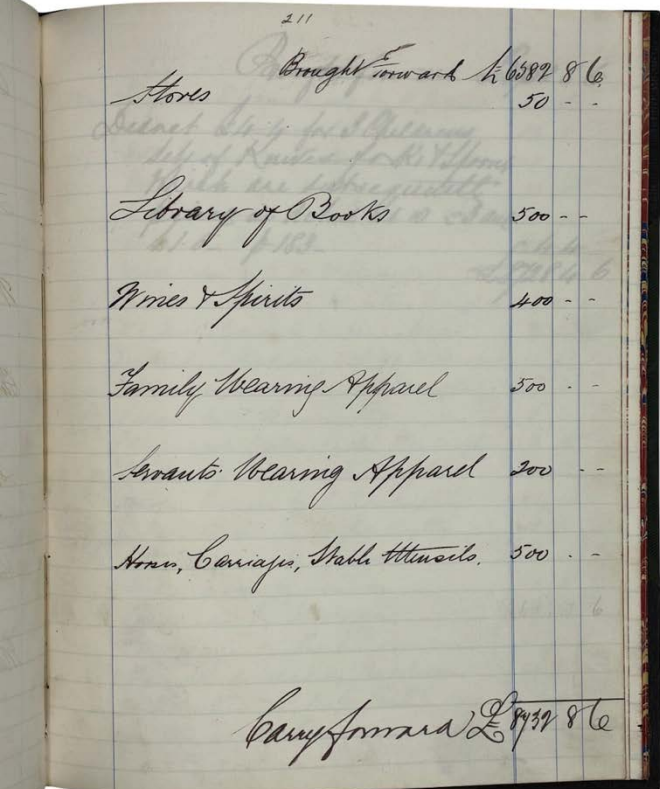 211
Brought Forward £ 6582 8 6
Stores 50 - -
Library of Books 500 - -
Wines & Spirits 400 - -
Family Wearing Apparel 500 - -
Servants Wearing Apparel 200 - -
Horses, Carriages, Stable Utensils. 500 - -
Carry forward £ 8732 8 6